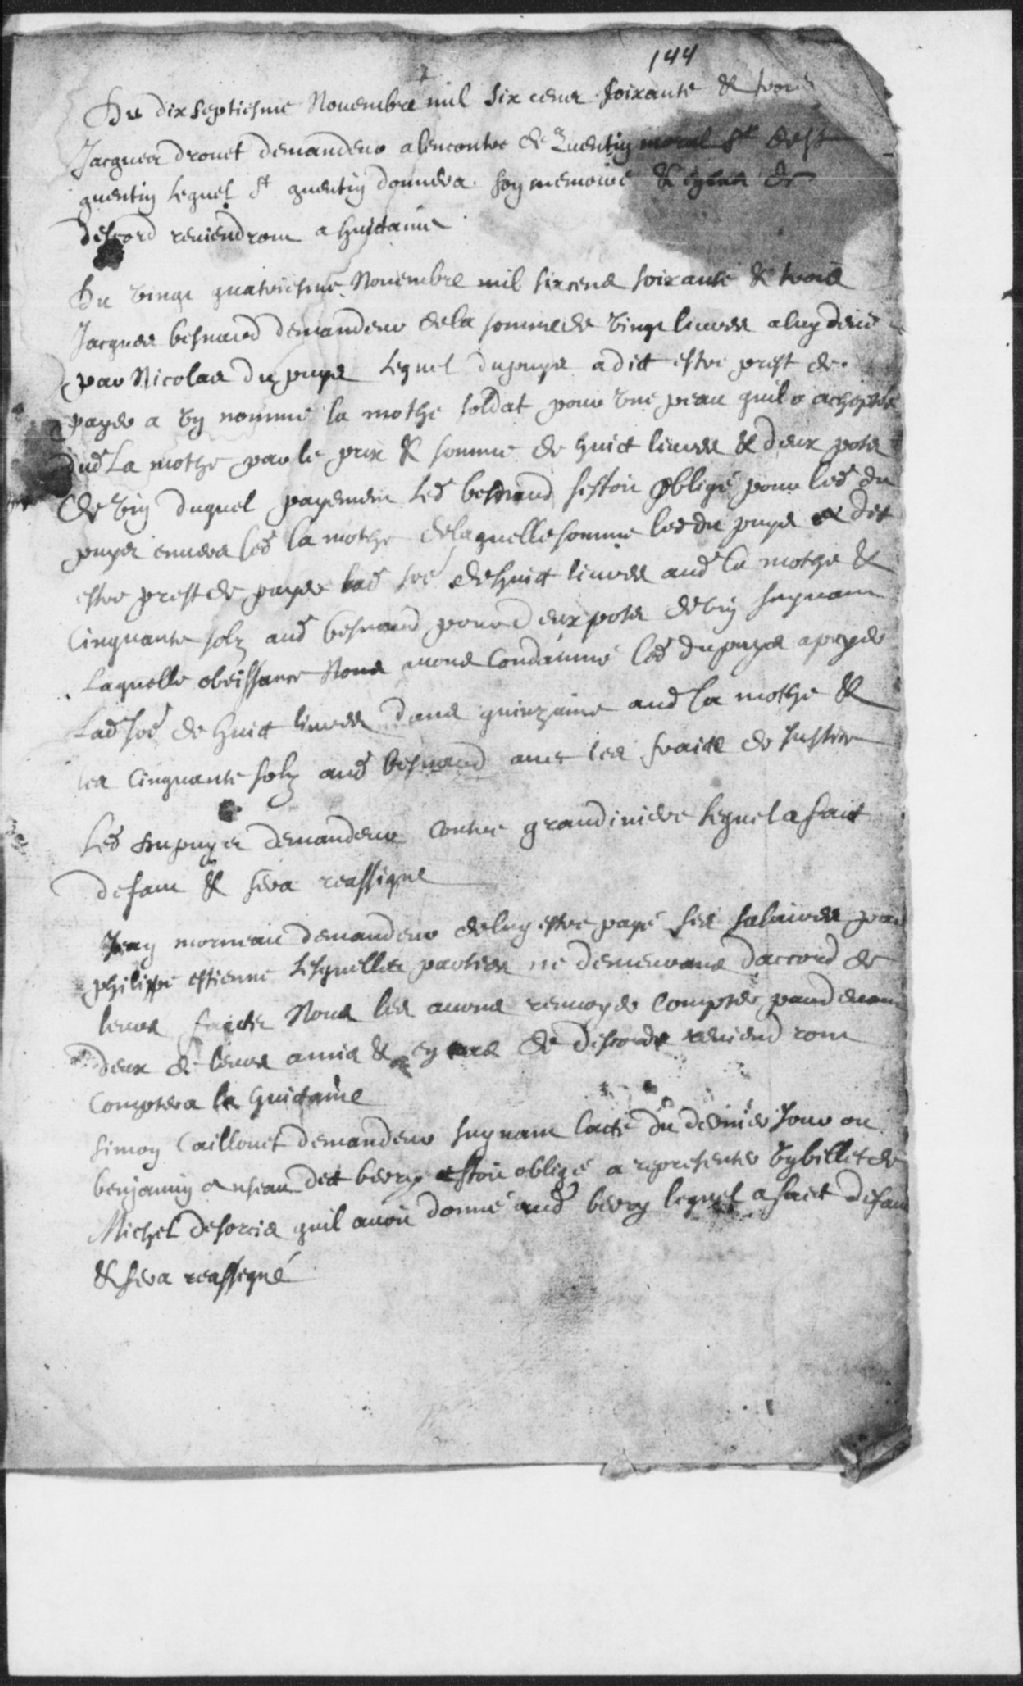 144
Du dix septiesme Novembre mil six cens soixante & trois
Jacques drouet demandeur alencontre de Quentin moral Sr de St
quentin lequel St quentin donnera son memoire & en cas de
descord reviendront a huictaine
Du vingt quatriesme Novembre mil six cens soixante & trois
Jacques besnard demandeur de la somme de vingt livres a luy deue
par Nicolas du puys Lequel dupuys a dit estre prest de
payer a un nommé la mothe soldat pour une peau quil a acheptée
dud La mothe par le prix & somme de huict livres & deux pots
de vin duquel payement led besnard sestoit obligé pour led du
puys envers led la mothe de laquelle somme led du puys a dit
estre prest de payer lad soe de huict livres aud la mothe &
cinquante solz aud besnard pour deux pots de vin suyvant
Laquelle obeissance Nous avons condamné led dupuys a payer
Lad soe de huict livres dans quinzaine aud la mothe &
les cinquante solz aud besnard avec les fraicts de Justice
Led dupuys demandeur contre grandiniere lequel a fait
defaut & sera reassigné
Jean morneau demandeur de luy estre payé ses salaires par
philippe estienne Lesquelles parties ne demeurans daccord de
leurs faicts Nous les avons renvoyés compter par devant
deux de leurs amis & en cas de discorde reviendront
compter a la huictaine
Simon Caillouet demandeur suyvant lacte du dernier Jour ou
benjamin anseau dit berry estoit obligé a representer un billet de
Michel desorcis quil avoit donné aud berry lequel a fait defaut
& sera reassigné